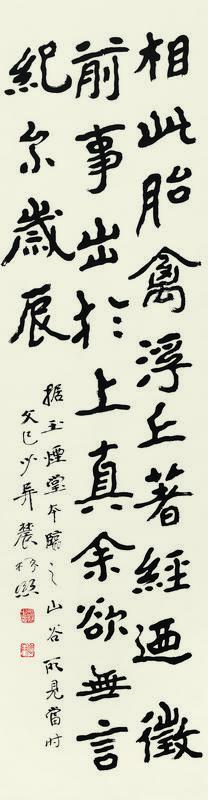 相此胎禽浮丘著經迺徵
前事出於上真余欲無言
紀尒歲辰
据玉煙堂本臨之山谷所見當时
文已少異